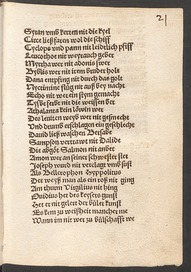 21
Syrau vnd kerem nit die kyel
Circe ließ faren wol die schiff
Cyclops vnd pann nit leidtlich pfiff
Leucothoe nit weyrauch geber
Myrrha wer nit adonis swer
Byblis wer nit irem bruder holt
Dana entpfing nit durch das golt
Nyctimine flüg nit auß by nacht
Echo nit wer ein stym gemacht
Tysbe färbt nit die weissen ber
Athalanta kein löwin wer
Des leuiten weyb wer nit geschent
Vnd drumb erschlagen ein geschlecht
Dauid ließ waschen Bersabe
Sampson vertruwt nit Dalide
Die abgöt Salmon nit anbet
Amon wer an seiner schwester stet
Joseph wurd nit verclagt vmb sust
Als Bellerophon Hyppolitus
Der weyß man als ein roß nit ging
Am thurn Virgilius nit hing
Ouidius het des keysers gunst
Het er nit gelert der büler kunst
Es kem zu weißheit mancher me
Wann im nit wer zu bülschafft we